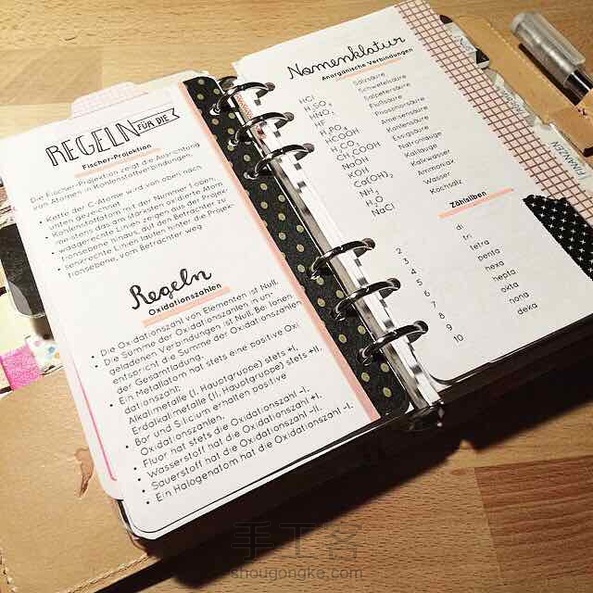 REGELN FÜR DIE
Fischer-Projektion
Die Fischer-Projektion zeigt die Ausrichtung
von Atomen in Kohlenstoffverbindungen.
• Kette der C-Atome wird von oben nach
unten gezeichnet
• Kohlenstoffatom mit der Nummer 1 oben,
meistens das am stärksten oxidierte Atom
• waagerechte Linien zeigen aus der Projek-
tionsebene hinaus, auf den Betrachter zu
• senkrechte Linien laufen hinter die Projek-
tionsebene, vom Betrachter weg
Regeln
Oxidationszahlen
• Die Oxidationszahl von Elementen ist Null.
• Die Summe der Oxidationszahlen in un-
geladenen Verbindungen ist Null. Bei Ionen
entspricht die Summe der Oxidationszahlen
der Gesamtladung.
• Ein Metallatom hat stets eine positive Oxi
dationszahl.
Alkalimetalle (I. Hauptgruppe) stets +I,
Erdalkalimetalle (II. Hauptgruppe) stets +II.
• Bor und Silicium erhalten positive
Oxidationszahlen.
• Fluor hat stets die Oxidationszahl -I.
• Wasserstoff hat die Oxidationszahl +I.
• Sauerstoff hat die Oxidationszahl -II.
• Ein Halogenatom hat die Oxidationszahl -I.
Nomenklatur
Anorganische Verbindungen
HCl Salzsäure
H₂SO₄ Schwefelsäure
HNO₃ Salpetersäure
HF Flußsäure
H₃PO₄ Phosphorsäure
HCOOH Ameisensäure
H₂CO₃ Kohlensäure
CH₃COOH Essigsäure
NaOH Natronlauge
KOH Kalilauge
Ca(OH)₂ Kalkwasser
NH₃ Ammoniak
H₂O Wasser
NaCl Kochsalz
Zahlsilben
2 di
3 tri
4 tetra
5 penta
6 hexa
7 hepta
8 okta
9 nona
10 deka
FRANZEN
手工客
shougongke.com